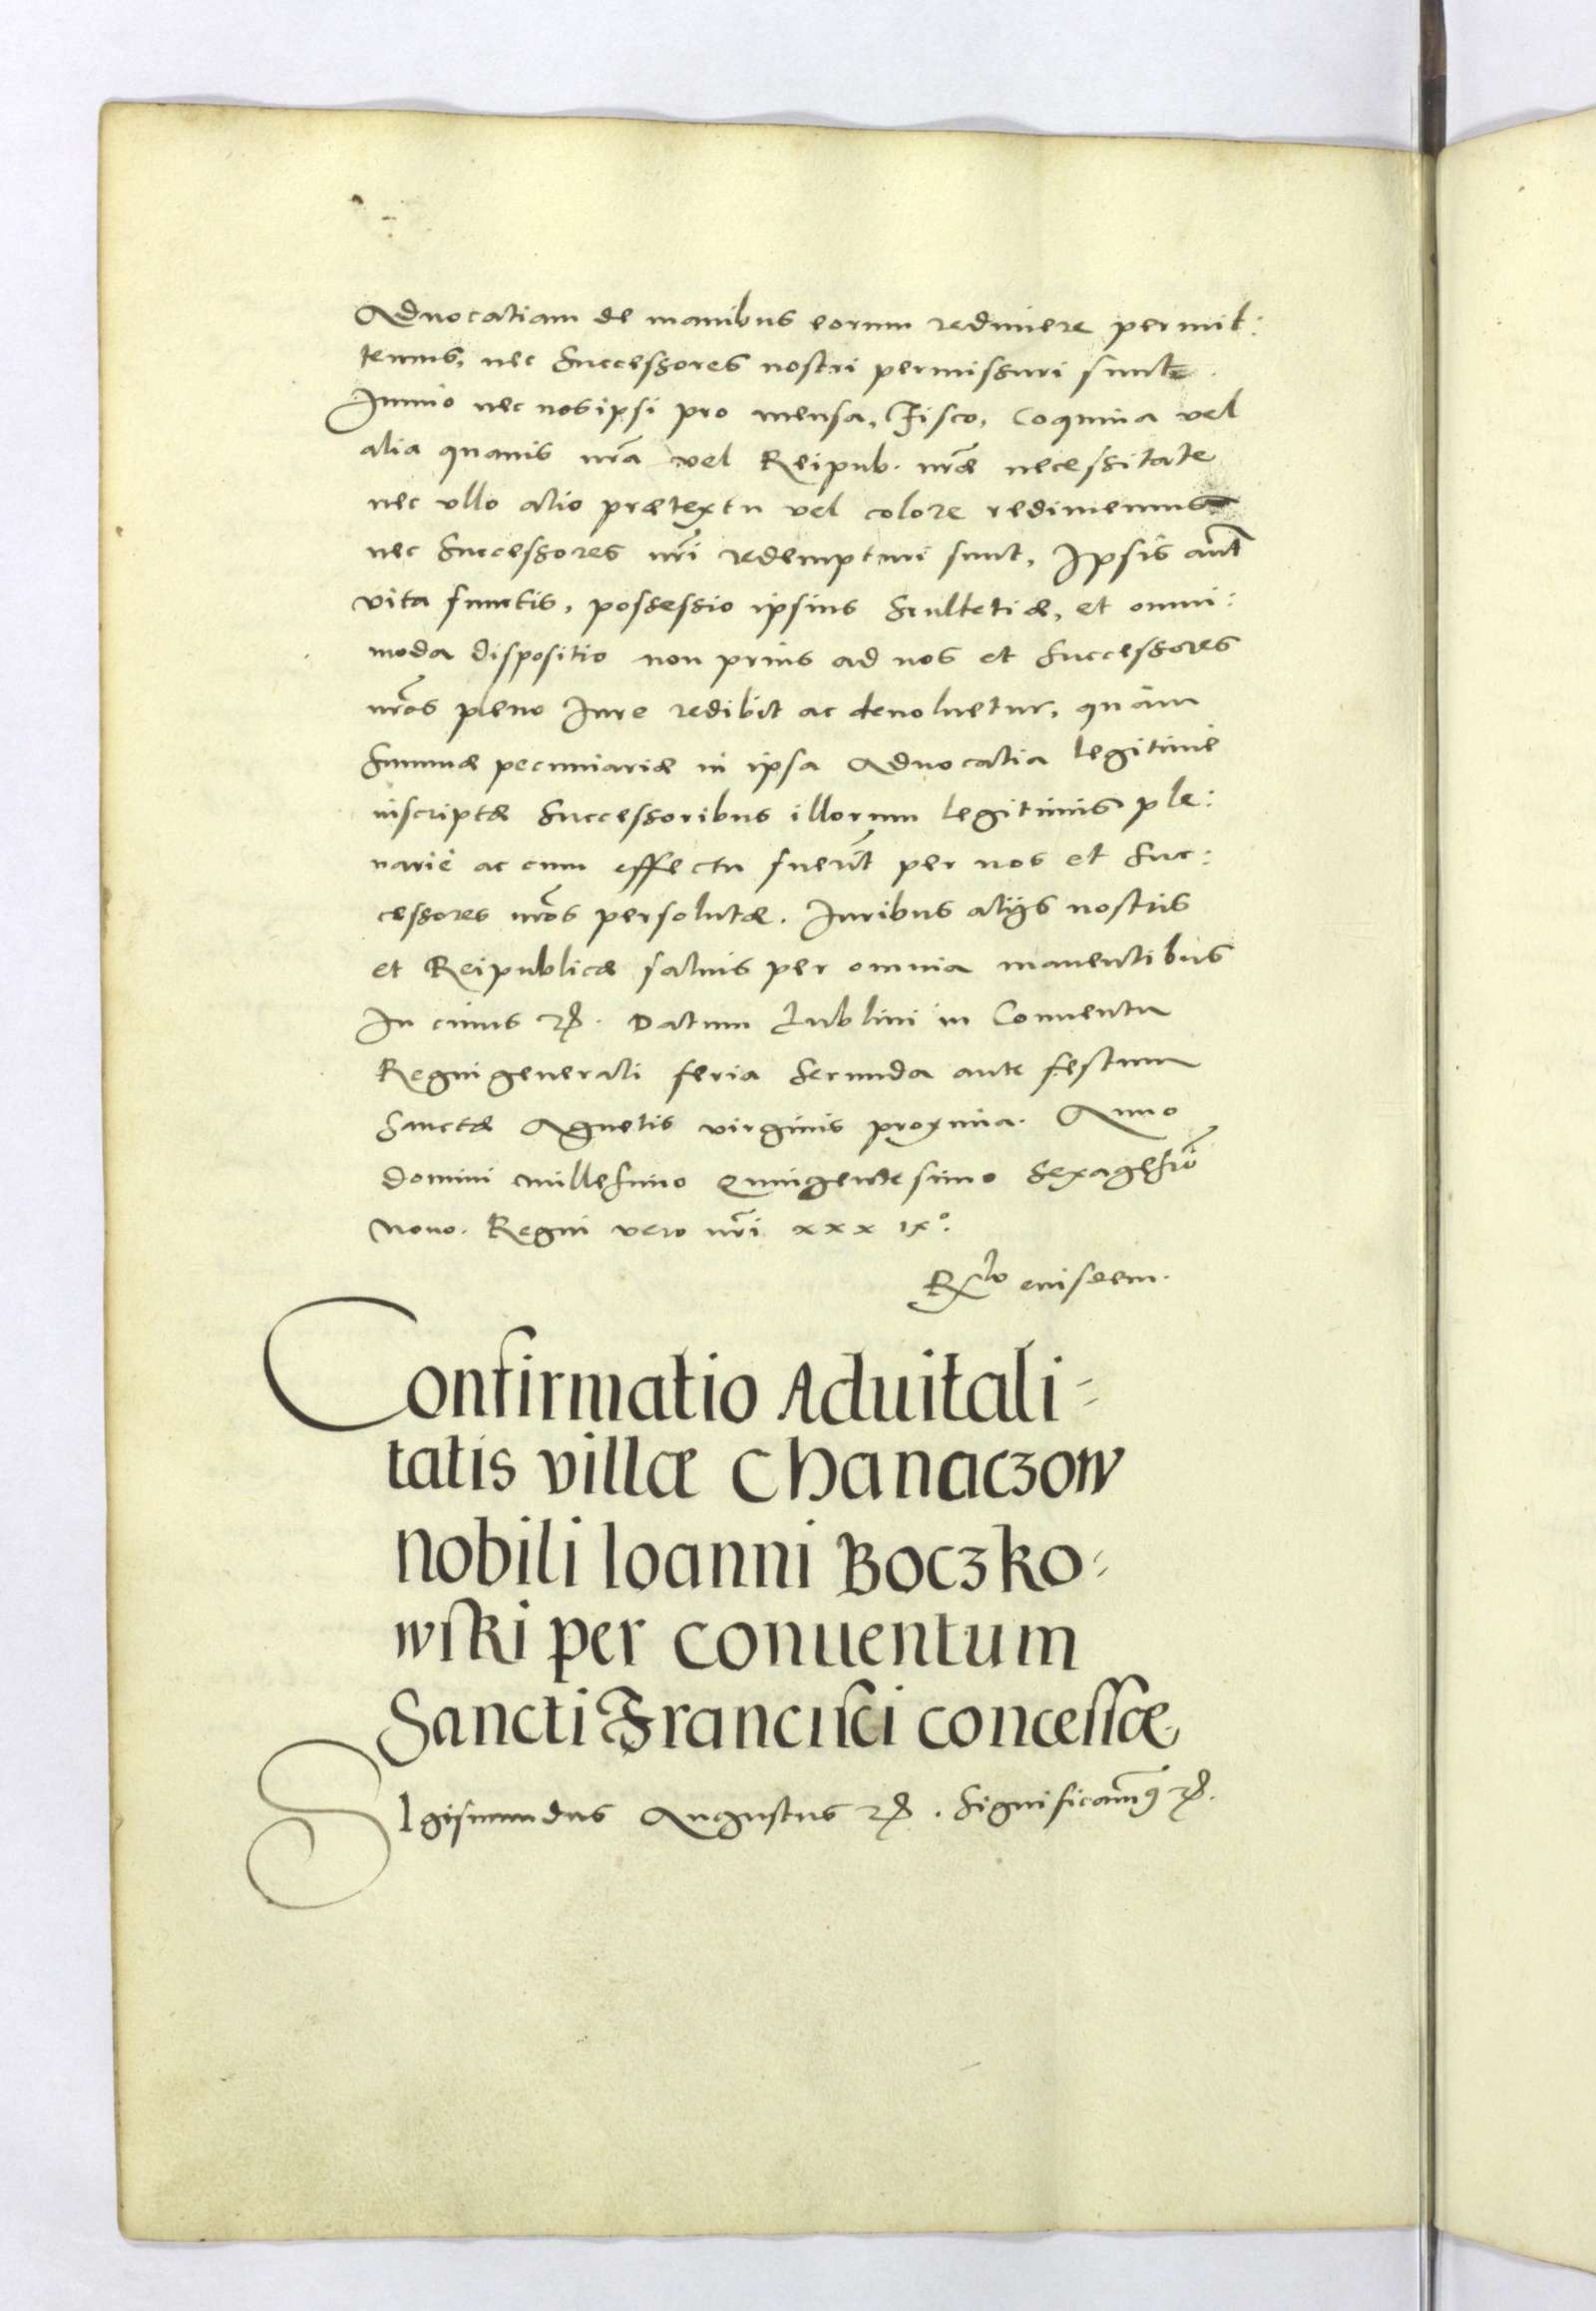 Aduocatiam de manibus eorum redimere permit:
temus, nec Successores nostri permissuri sunt.
Immo nec nos ipsi pro mensa, Fisco, Coquina vel
alia quauis nr̃a vel Reipub. nr̃æ necessitate
nec vllo alio prætextu vel colore redimemus
nec Successores nr̃i redempturi sunt, Ipsis aut̃
vita functis, possessio ipsius Scultetiæ, et omni:
moda dispositio non prius ad nos et Successores
nr̃os pleno Iure redibit ac deuoluetur, quàm
Summæ pecuniariæ in ipsa Aduocatia legitimè
inscriptæ Successoribus illorum legitimis ple:
nariè ac cum effectu fuerĩt per nos et Suc:
cessores nr̃os persolutæ. Iuribus alijs nostris
et Reipublicæ saluis per omnia manentibus
In cuius ꝛc̃. Datum Lublini in Conuentu
Regni generali feria Secunda ante festum
Sanctæ Agnetis virginis proxima. Anno
Domini Millesimo Quingentesimo Sexagesiõ
Nono. Regni vero nr̃i xxx ix°.
R̃lo eiusdem.
Confirmatio Aduitali=
tatis villæ Chanaczow
Nobili Ioanni Boczko=
wski per conuentum
Sancti Francisci concessæ
Sigismundus Augustus ꝛc̃. Significamꝰ ꝛc̃.